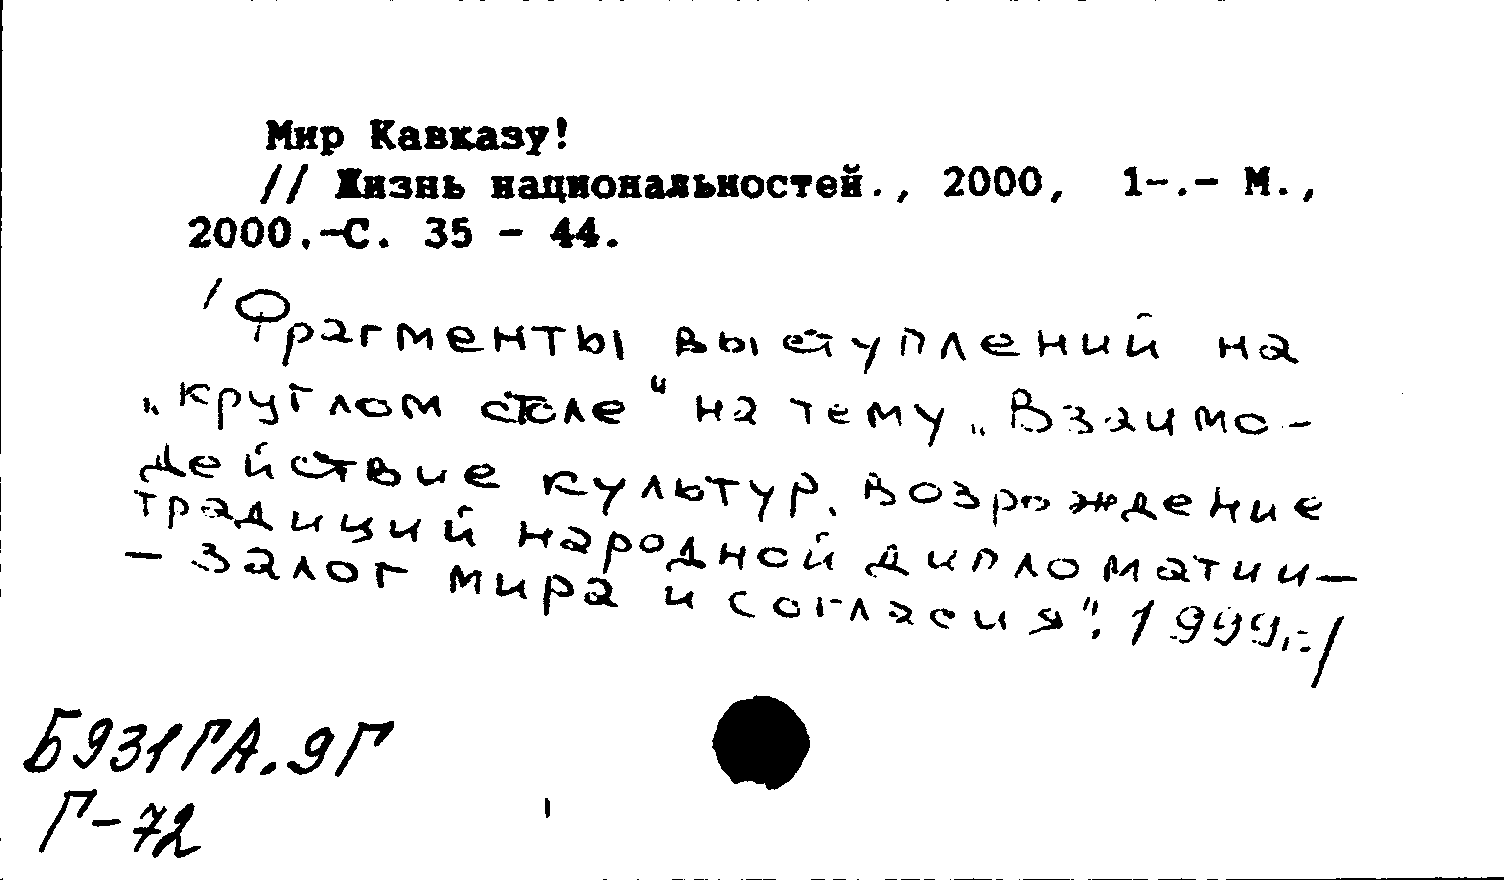 Мир Кавказу!
// Жизнь национальностей., 2000, 1-.- М.,
2000.-С. 35 - 44.
/ Фрагменты выступлений на
„круглом столе“ на тему „Взаимо-
действие культур. Возрождение
традиций народной дипломатии –
– залог мира и согласия". 1999г./
Б931ГА.9Г
Г-72